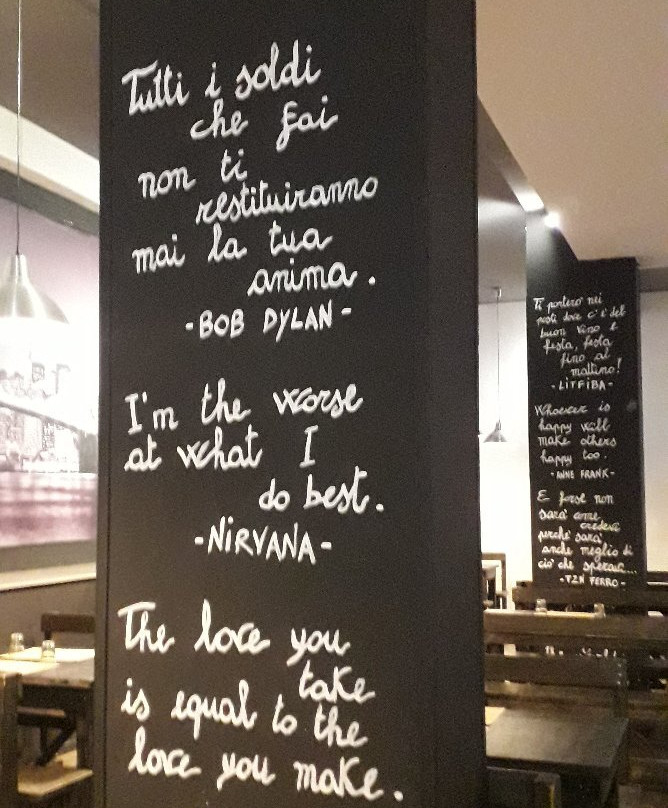 Tutti i soldi
che fai
non ti
restituiranno
mai la tua
anima.
-BOB DYLAN-
I'm the worse
at what I
do best.
-NIRVANA-
The love you
take
is equal to the
love you make.
Ti porterò nei
posti dove c'è del
buon vino e
festa, festa
fino al
mattino!
-LITFIBA-
Whoever is
happy will
make others
happy too.
-ANNE FRANK-
E forse non
sarà come
credevi
perchè sarà
anche meglio di
ciò che speravi...
-TZN FERRO-